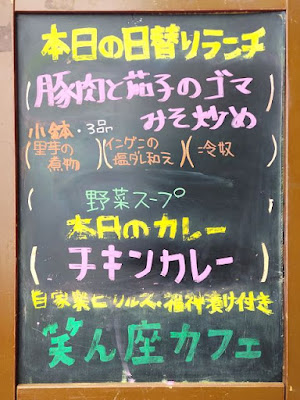 本日の日替りランチ
(豚肉と茄子のゴマ
みそ炒め)
小鉢・3品
(里芋の煮物)(インゲンの塩ダレ和え)(冷奴)
野菜スープ
本日のカレー
(チキンカレー)
自家製ピクルス・福神漬け付き
笑ん座カフェ